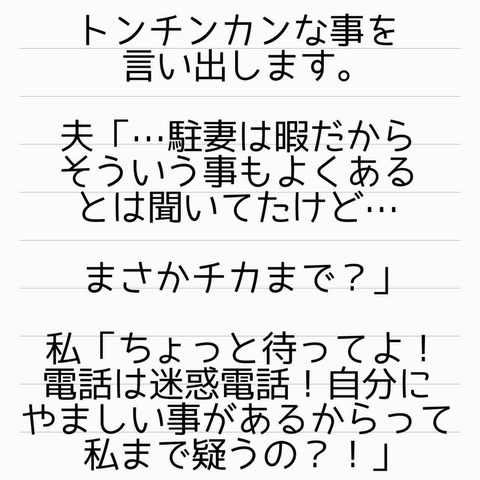 トンチンカンな事を
言い出します。
夫「…駐妻は暇だから
そういう事もよくある
とは聞いてたけど…
まさかチカまで？」
私「ちょっと待ってよ！
電話は迷惑電話！自分に
やましい事があるからって
私まで疑うの？！」